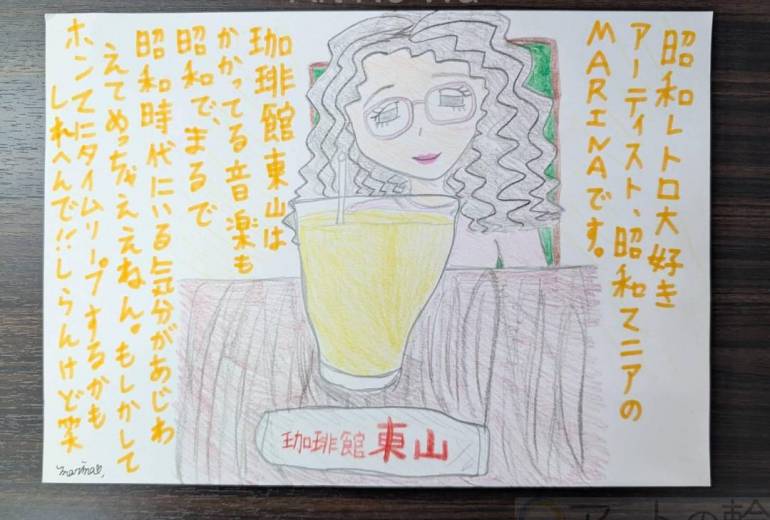 昭和レトロ大好き
アーティスト、昭和マニアの
MARINAです。
珈琲館東山は
かかってる音楽も
昭和で、まるで
昭和時代にいる気分があじわ
えてめっちゃええねん。もしかして
ホンマにタイムリープするかも
しれへんで!!しらんけど笑
珈琲館 東山
marina